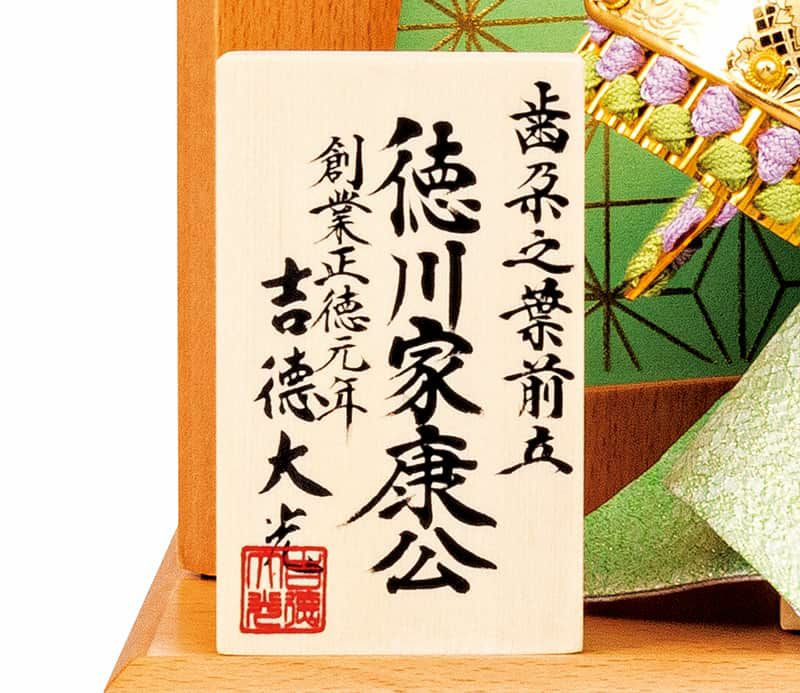 歯朶之葉前立
徳川家康公
創業正徳元年
吉德大光
吉德大光